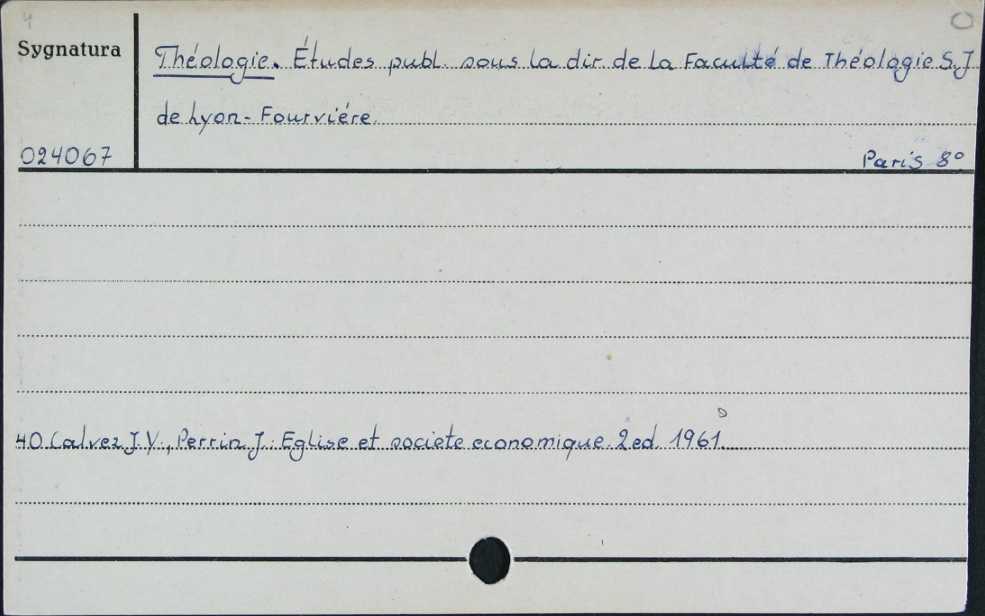 4
Sygnatura
Théologie. Études publ. sous la dir. de la Faculté de Théologie S.J
de Lyon-Fourviére.
024067
Paris 8°
40 Calvez J. Y., Perrin J.: Eglise et societe economique. 2 ed. 1961.